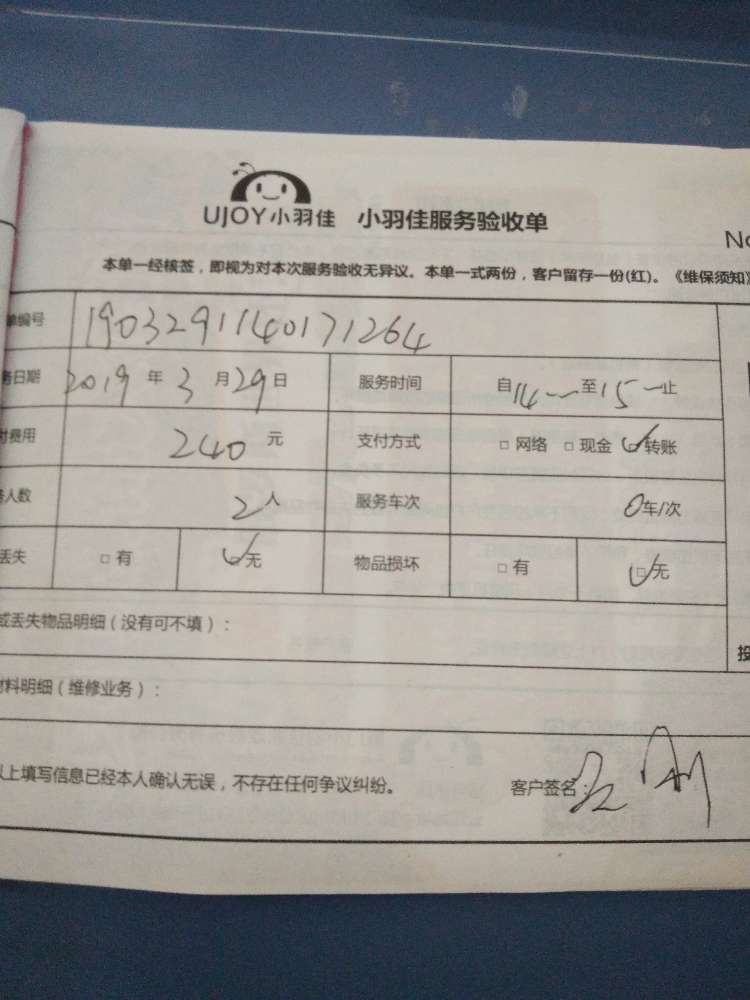 UJOY小羽佳 小羽佳服务验收单
No
本单一经核签，即视为对本次服务验收无异议。本单一式两份，客户留存一份(红)。《维保须知》
单编号 19032911140171264
务日期 2019 年 3 月 29 日 服务时间 自 14 至 15 止
付费用 240 元 支付方式 □ 网络 □ 现金 ☑ 转账
务人数 2 人 服务车次 0 车/次
丢失 □ 有 ☑ 无 物品损坏 □ 有 ☑ 无
或丢失物品明细（没有可不填）：
投
材料明细（维修业务）：
以上填写信息已经本人确认无误，不存在任何争议纠纷。 客户签名：